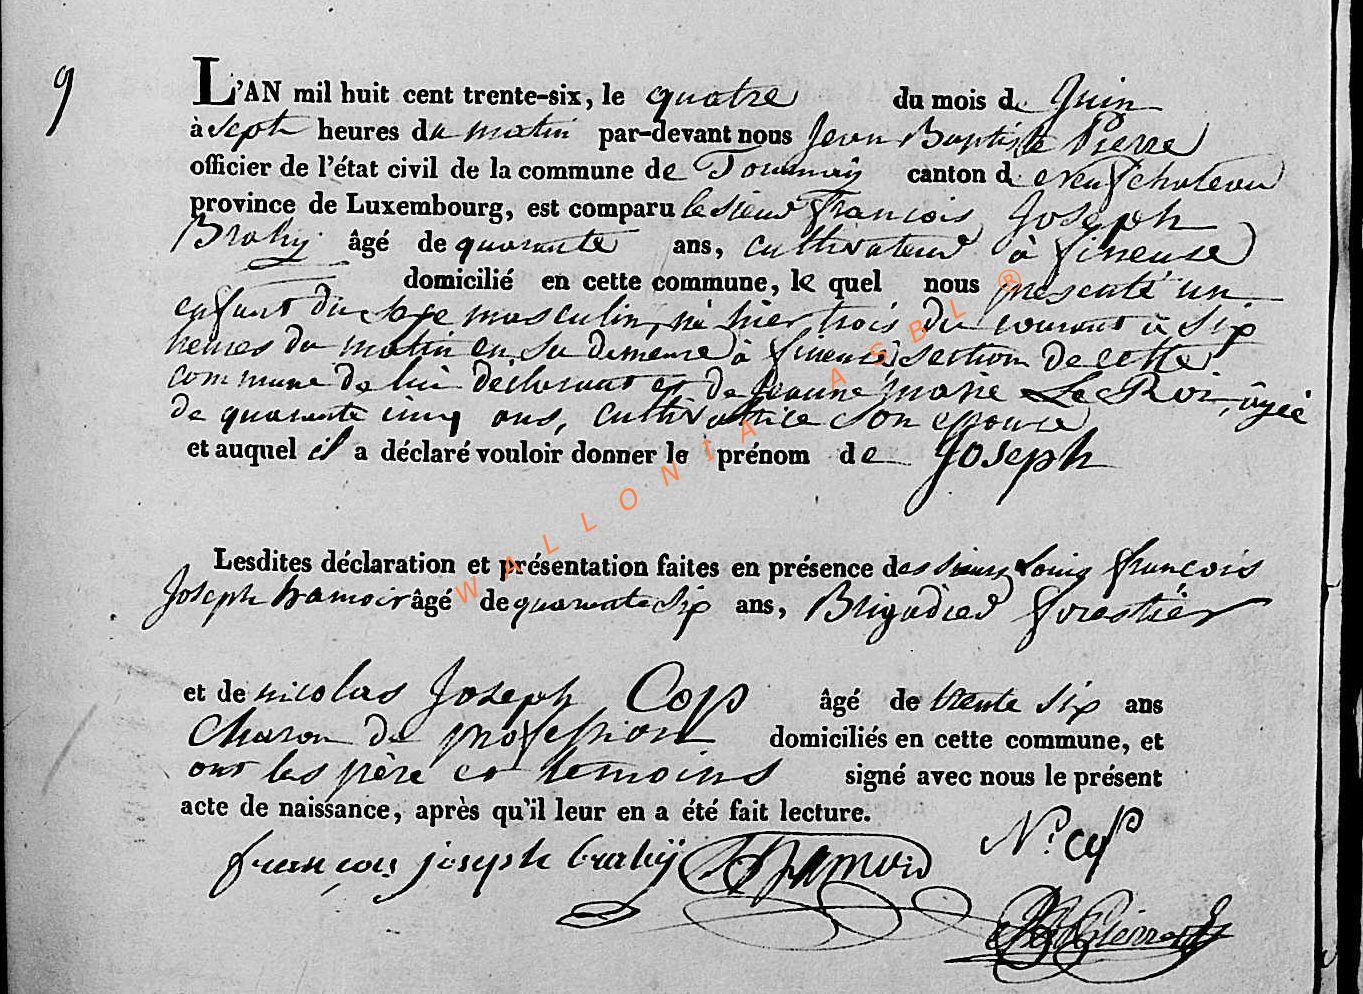 9
L'AN mil huit cent trente-six, le quatre du mois de Juin
à sept heures du matin par-devant nous Jean Baptiste Pierre
officier de l'état civil de la commune de Tournay canton de neufchateau
province de Luxembourg, est comparu le sieur François Joseph
Brahy âgé de quarante ans, cultivateur à fineuse
domicilié en cette commune, le quel nous presenté un
enfant du sexe masculin, né hier trois du courant à six
heures du matin en sa demeure à fineuse section de cette
commune de lui déclarant et de Jeanne marie Le Roi, âgée
de quarante cinq ans, cultivatrice son epouse
et auquel il a déclaré vouloir donner le prénom de Joseph
Lesdites déclaration et présentation faites en présence des sieurs Louis françois
Joseph hamoir âgé de quarante six ans, Brigadier forestier
et de nicolas Joseph Cop âgé de trente six ans
Charon de profession domiciliés en cette commune, et
ont les père et temoins signé avec nous le présent
acte de naissance, après qu'il leur en a été fait lecture.
françois joseph brahy hamoir N. Cop
Pierre
WALLONIA ASBL ®